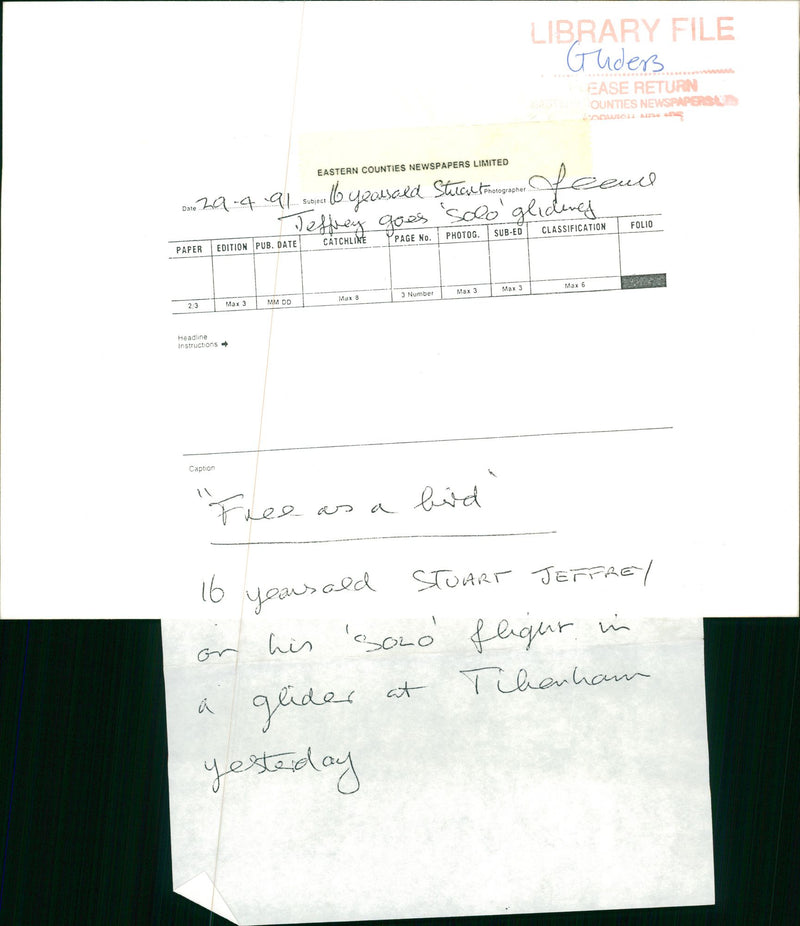 LIBRARY FILE
Gliders
EASE RETURN
OUNTIES NEWSPAPERS
EASTERN COUNTIES NEWSPAPERS LIMITED
Date 29-4-91 Subject 16 years old Stuart Photographer
Jeffrey goes 'Solo' gliding
PAPER EDITION PUB. DATE CATCHLINE PAGE No. PHOTOG. SUB-ED CLASSIFICATION FOLIO
2/3 Max 3 MM DD Max 8 3 Number Max 3 Max 3 Max 6
Headline
Instructions →
Caption
"Free as a bird"
16 years old STUART JEFFREY
on his 'SOLO' flight in
a glider at Tibenham
yesterday